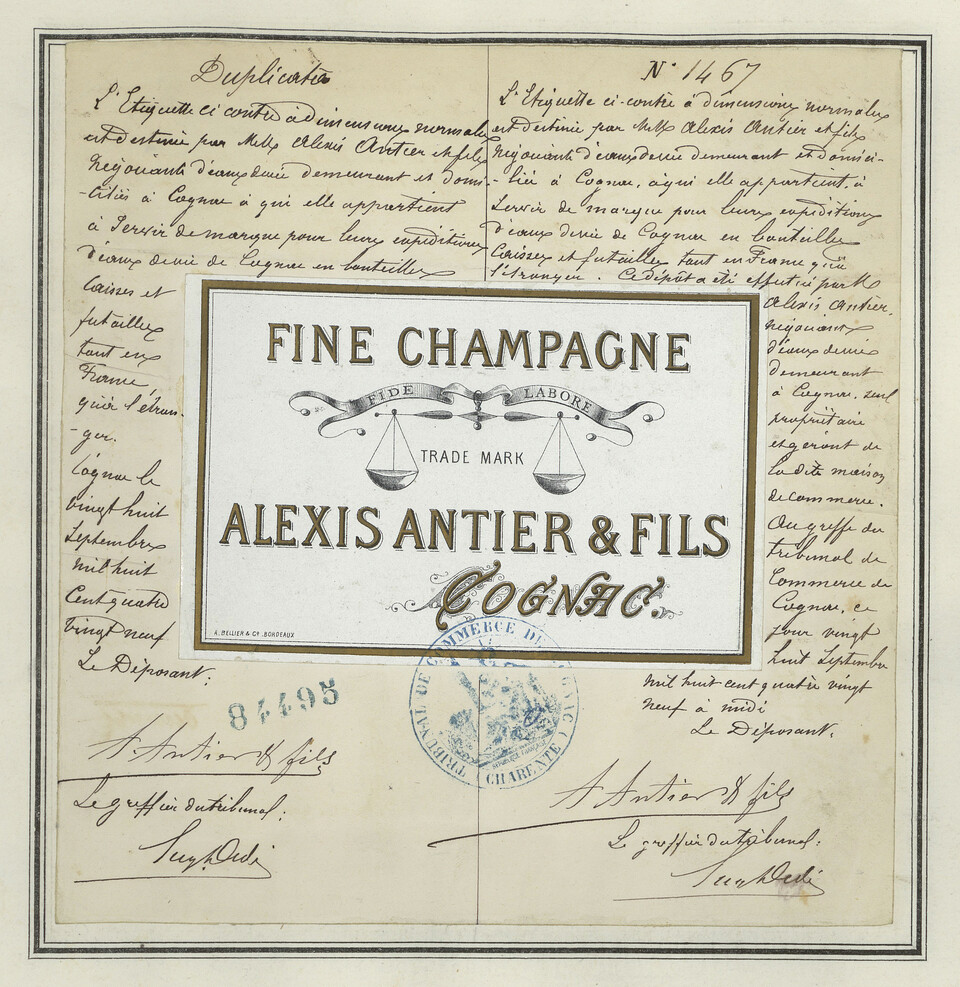 Duplicata
L'Etiquette ci contre à dimensions normales
est destinée par MM Alexis Antier et fils
Négociants d'eaux de vie demeurant et domi-
-ciliés à Cognac à qui elle appartient
à servir de marque pour leurs expéditions
d'eaux de vie de Cognac en bouteilles
Caisses et
futailles
tant en
France,
qu'à l'étran-
-ger.
Cognac le
vingt huit
Septembre
mil huit
Cent quatre
vingt neuf
Le Déposant:
84495
A Antier & fils
Le greffier du tribunal:
N° 1467
L'Etiquette ci-contre à dimensions normales
est destinée par MM Alexis Antier et fils
Négociants d'eaux de vie demeurant et domici-
-liés à Cognac, à qui elle appartient, à
servir de marque pour leurs expéditions
d'eaux de vie de Cognac en bouteilles
Caisses et futailles tant en France qu'à
l'étranger. Ce dépôt a été effectué par M
Alexis Antier,
négociant
d'eaux de vie
demeurant
à Cognac, seul
propriétaire
et gérant de
la dite maison
de commerce.
Au greffe du
tribunal de
Commerce de
Cognac, ce
jour vingt
huit Septembre
mil huit cent quatre vingt
neuf à midi
Le Déposant.
A Antier & fils
Le greffier du tribunal:
FINE CHAMPAGNE
FIDE LABORE
TRADE MARK
ALEXIS ANTIER & FILS
COGNAC.
A. BELLIER & Cie. BORDEAUX
TRIBUNAL DE COMMERCE DE COGNAC
(CHARENTE)